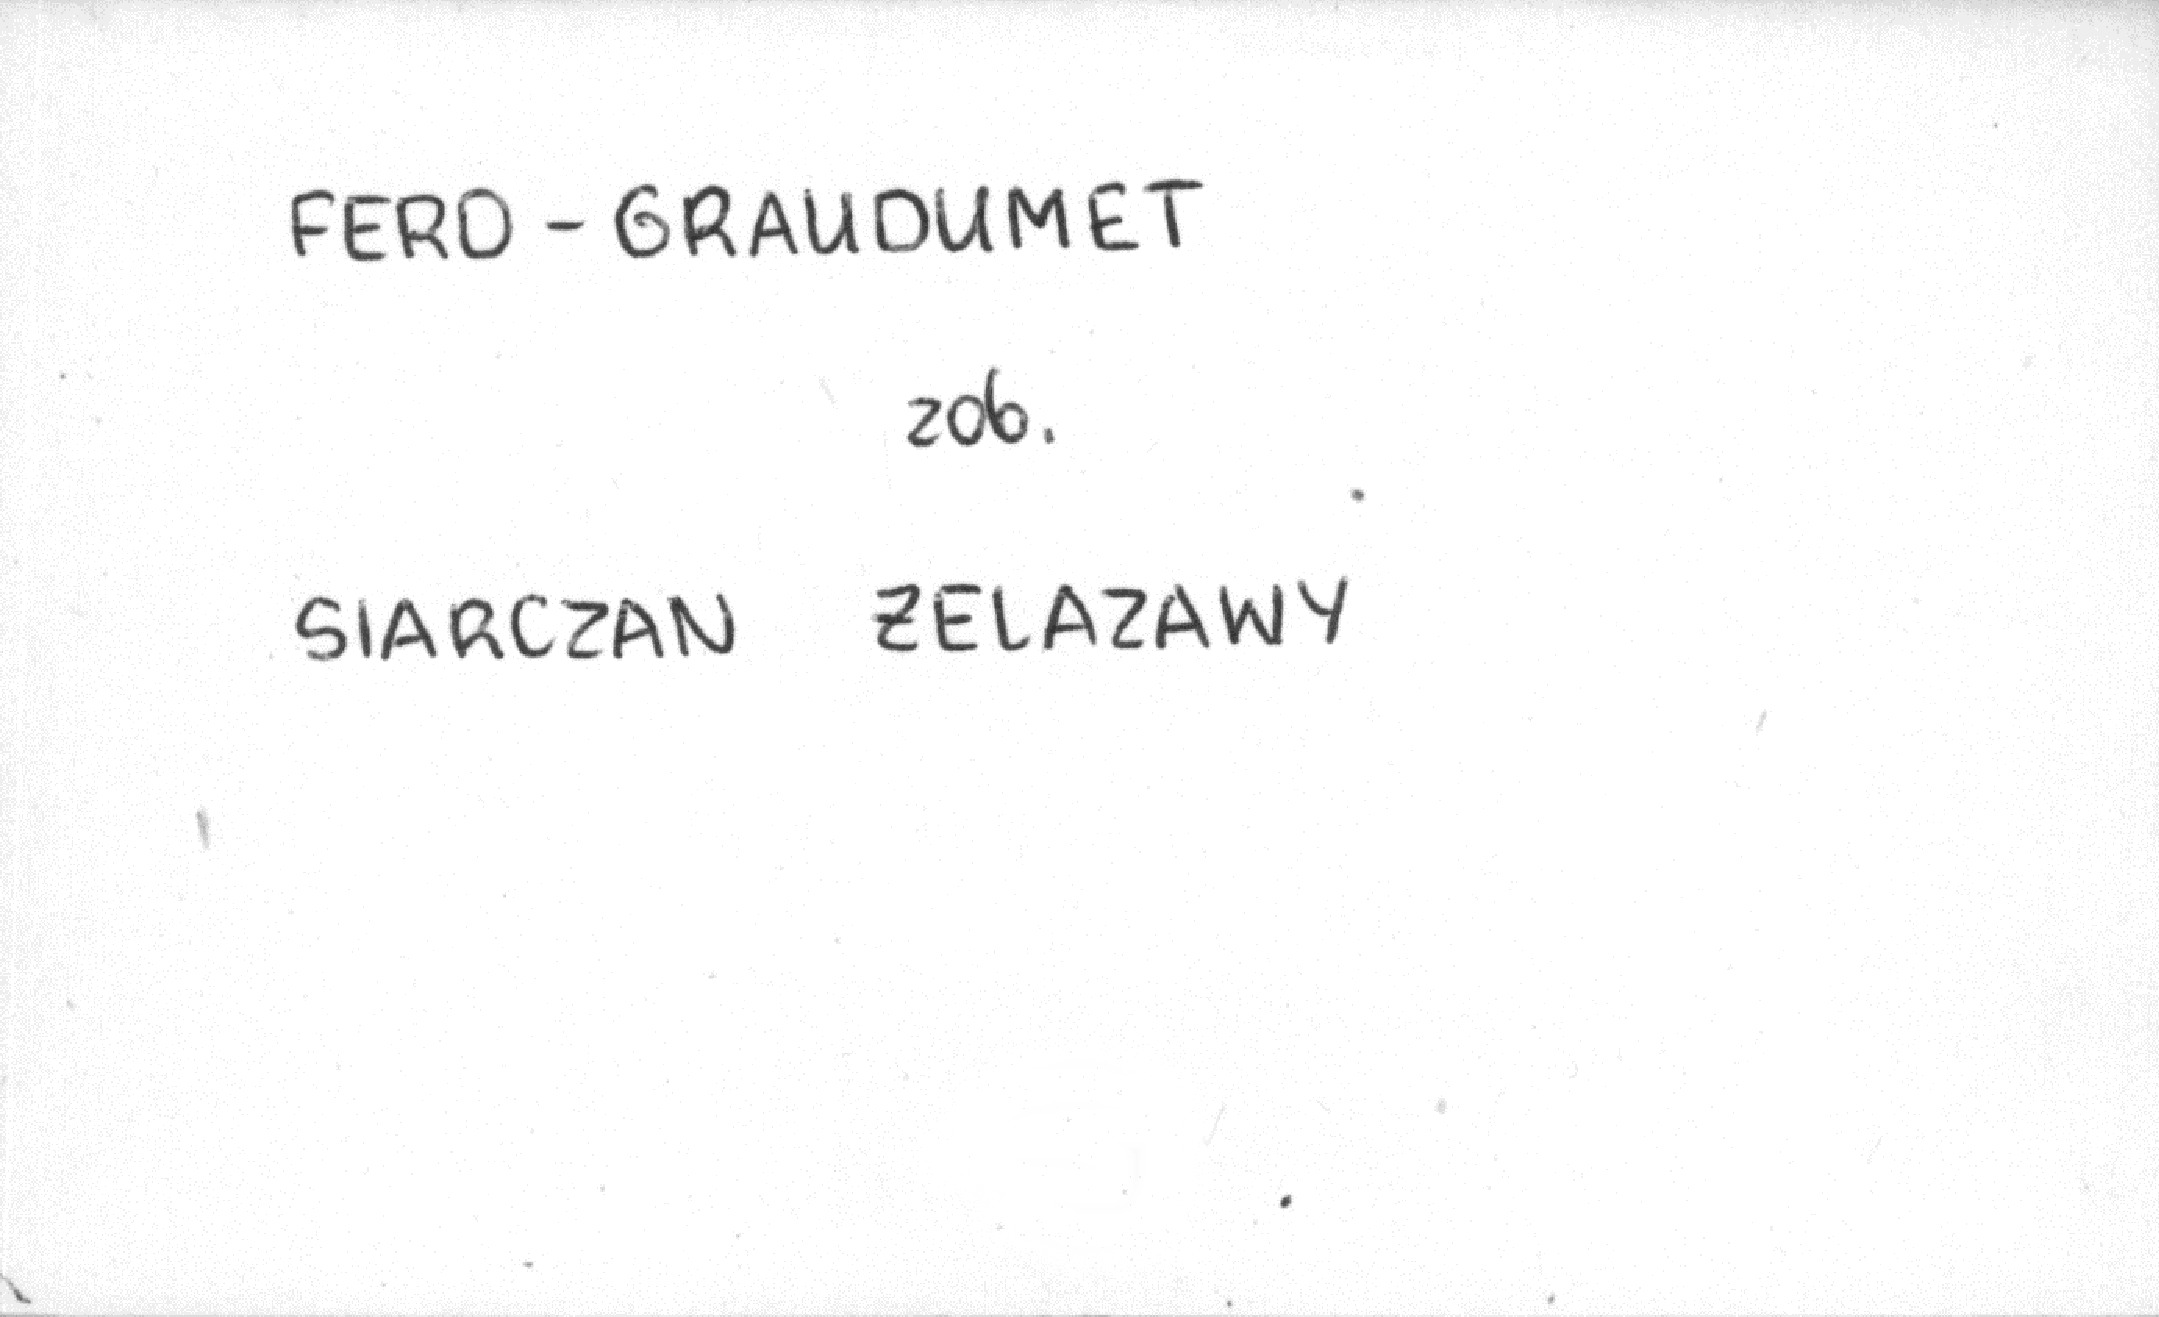 FERO - GRAUDUMET
zob.
SIARCZAN ŻELAZAWY